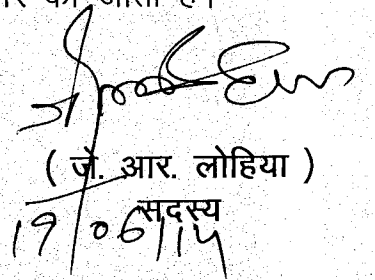 की जाती है।
( जे. आर. लोहिया )
सदस्य
19/06/14